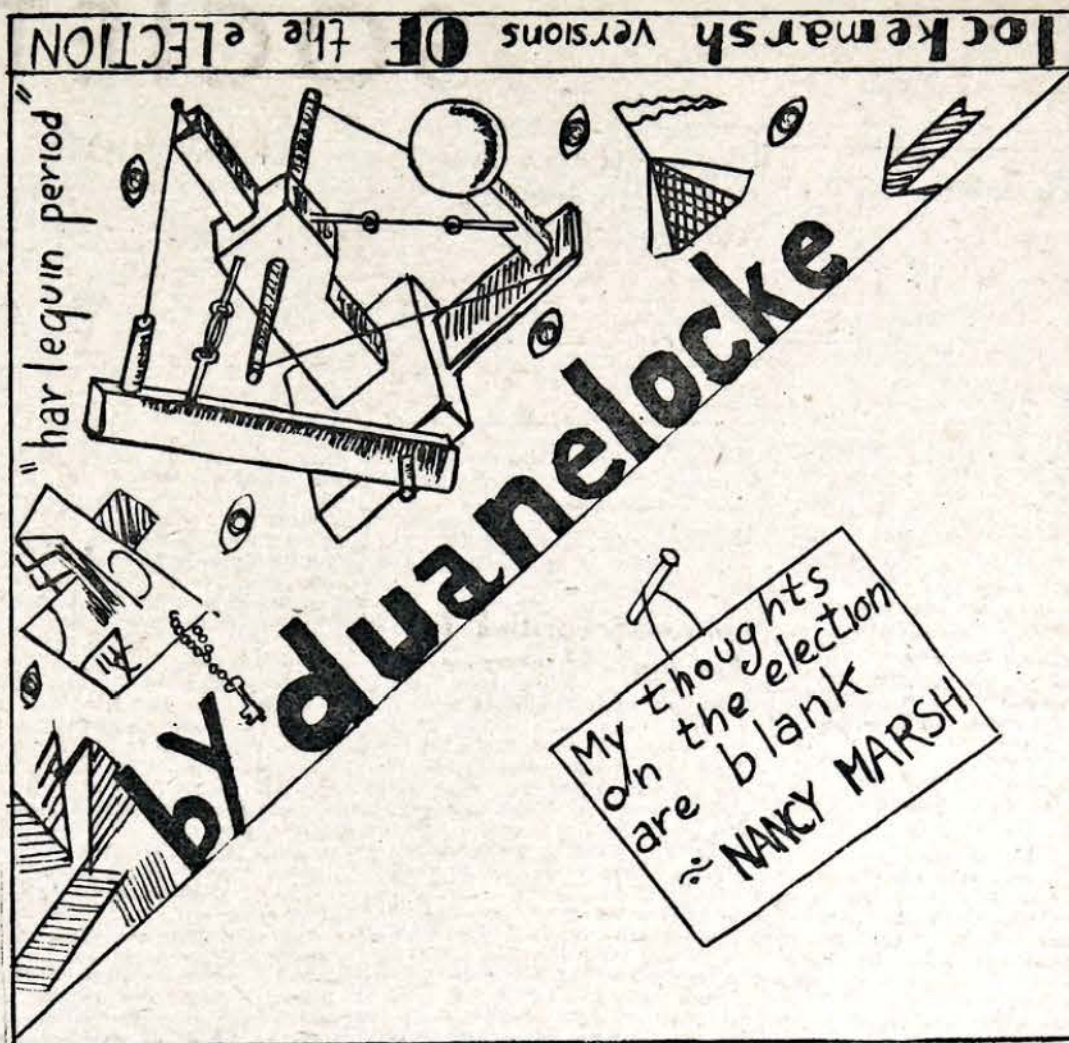 lockemarsh versions OF the ELECTION
"harlequin period"
by duanelocke
My thoughts
on the election
are blank
÷ NANCY MARSH